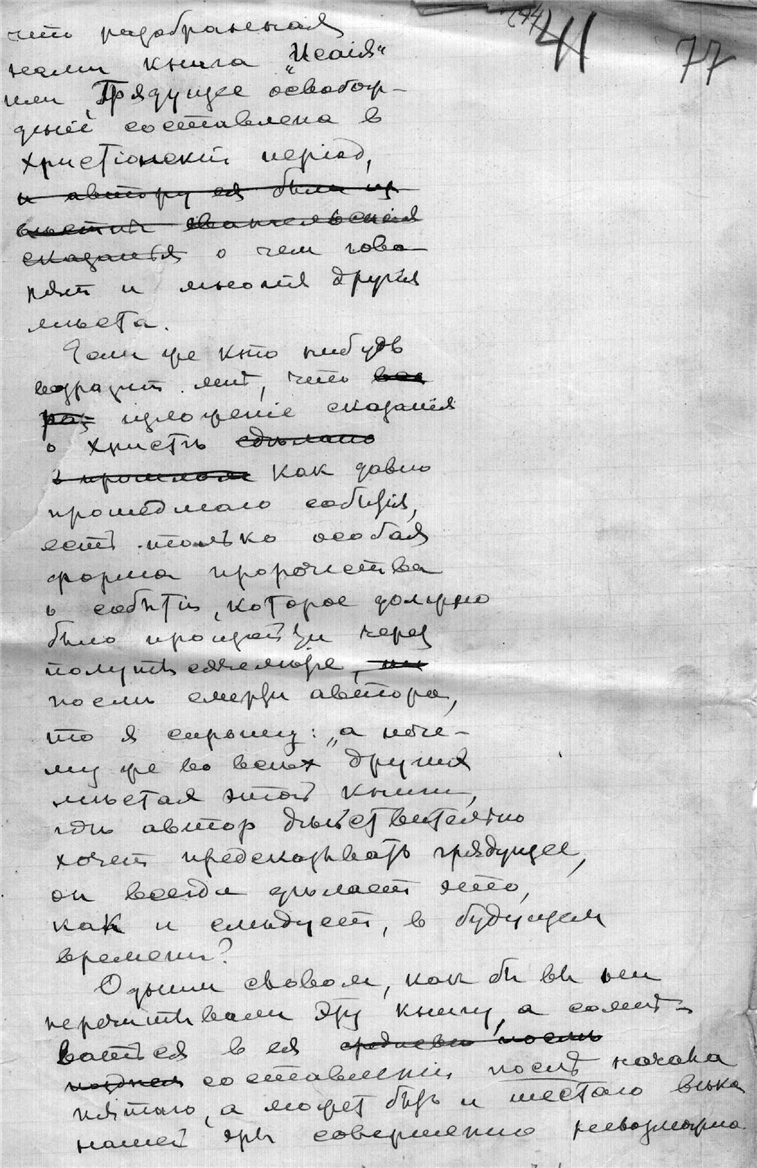 41 77
что разобранная
нами книга „Исаія“
или Грядущее освобож-
деніе составлена в
христіанскій період,
и автору ея были из-
вѣстны евангельскія
сказанья о чем гово-
рят и многія другія
мѣста.
Если же кто нибудь
возразит мнѣ, что
раз изложеніе сказанія
о Христѣ сдѣлано
в прошлом как давно
прошедшаго событія,
есть только особая
форма пророчества
о событіи, которое должно
было произойти через
полутысячелѣтіе,
послѣ смерти автора,
то я спрошу: „а поче-
му же во всѣх других
мѣстах этой книги,
гдѣ автор дѣйствительно
хочет предсказывать грядущее,
он всегда дѣлает это,
как и слѣдует, в будущем
времени?
Одним словом, как бы вы ни
перечитывали эту книгу, а сомнѣ-
ваться в ея
составленіи послѣ начала
пятаго, а может быть и шестаго вѣка
нашей эры совершенно невозможно